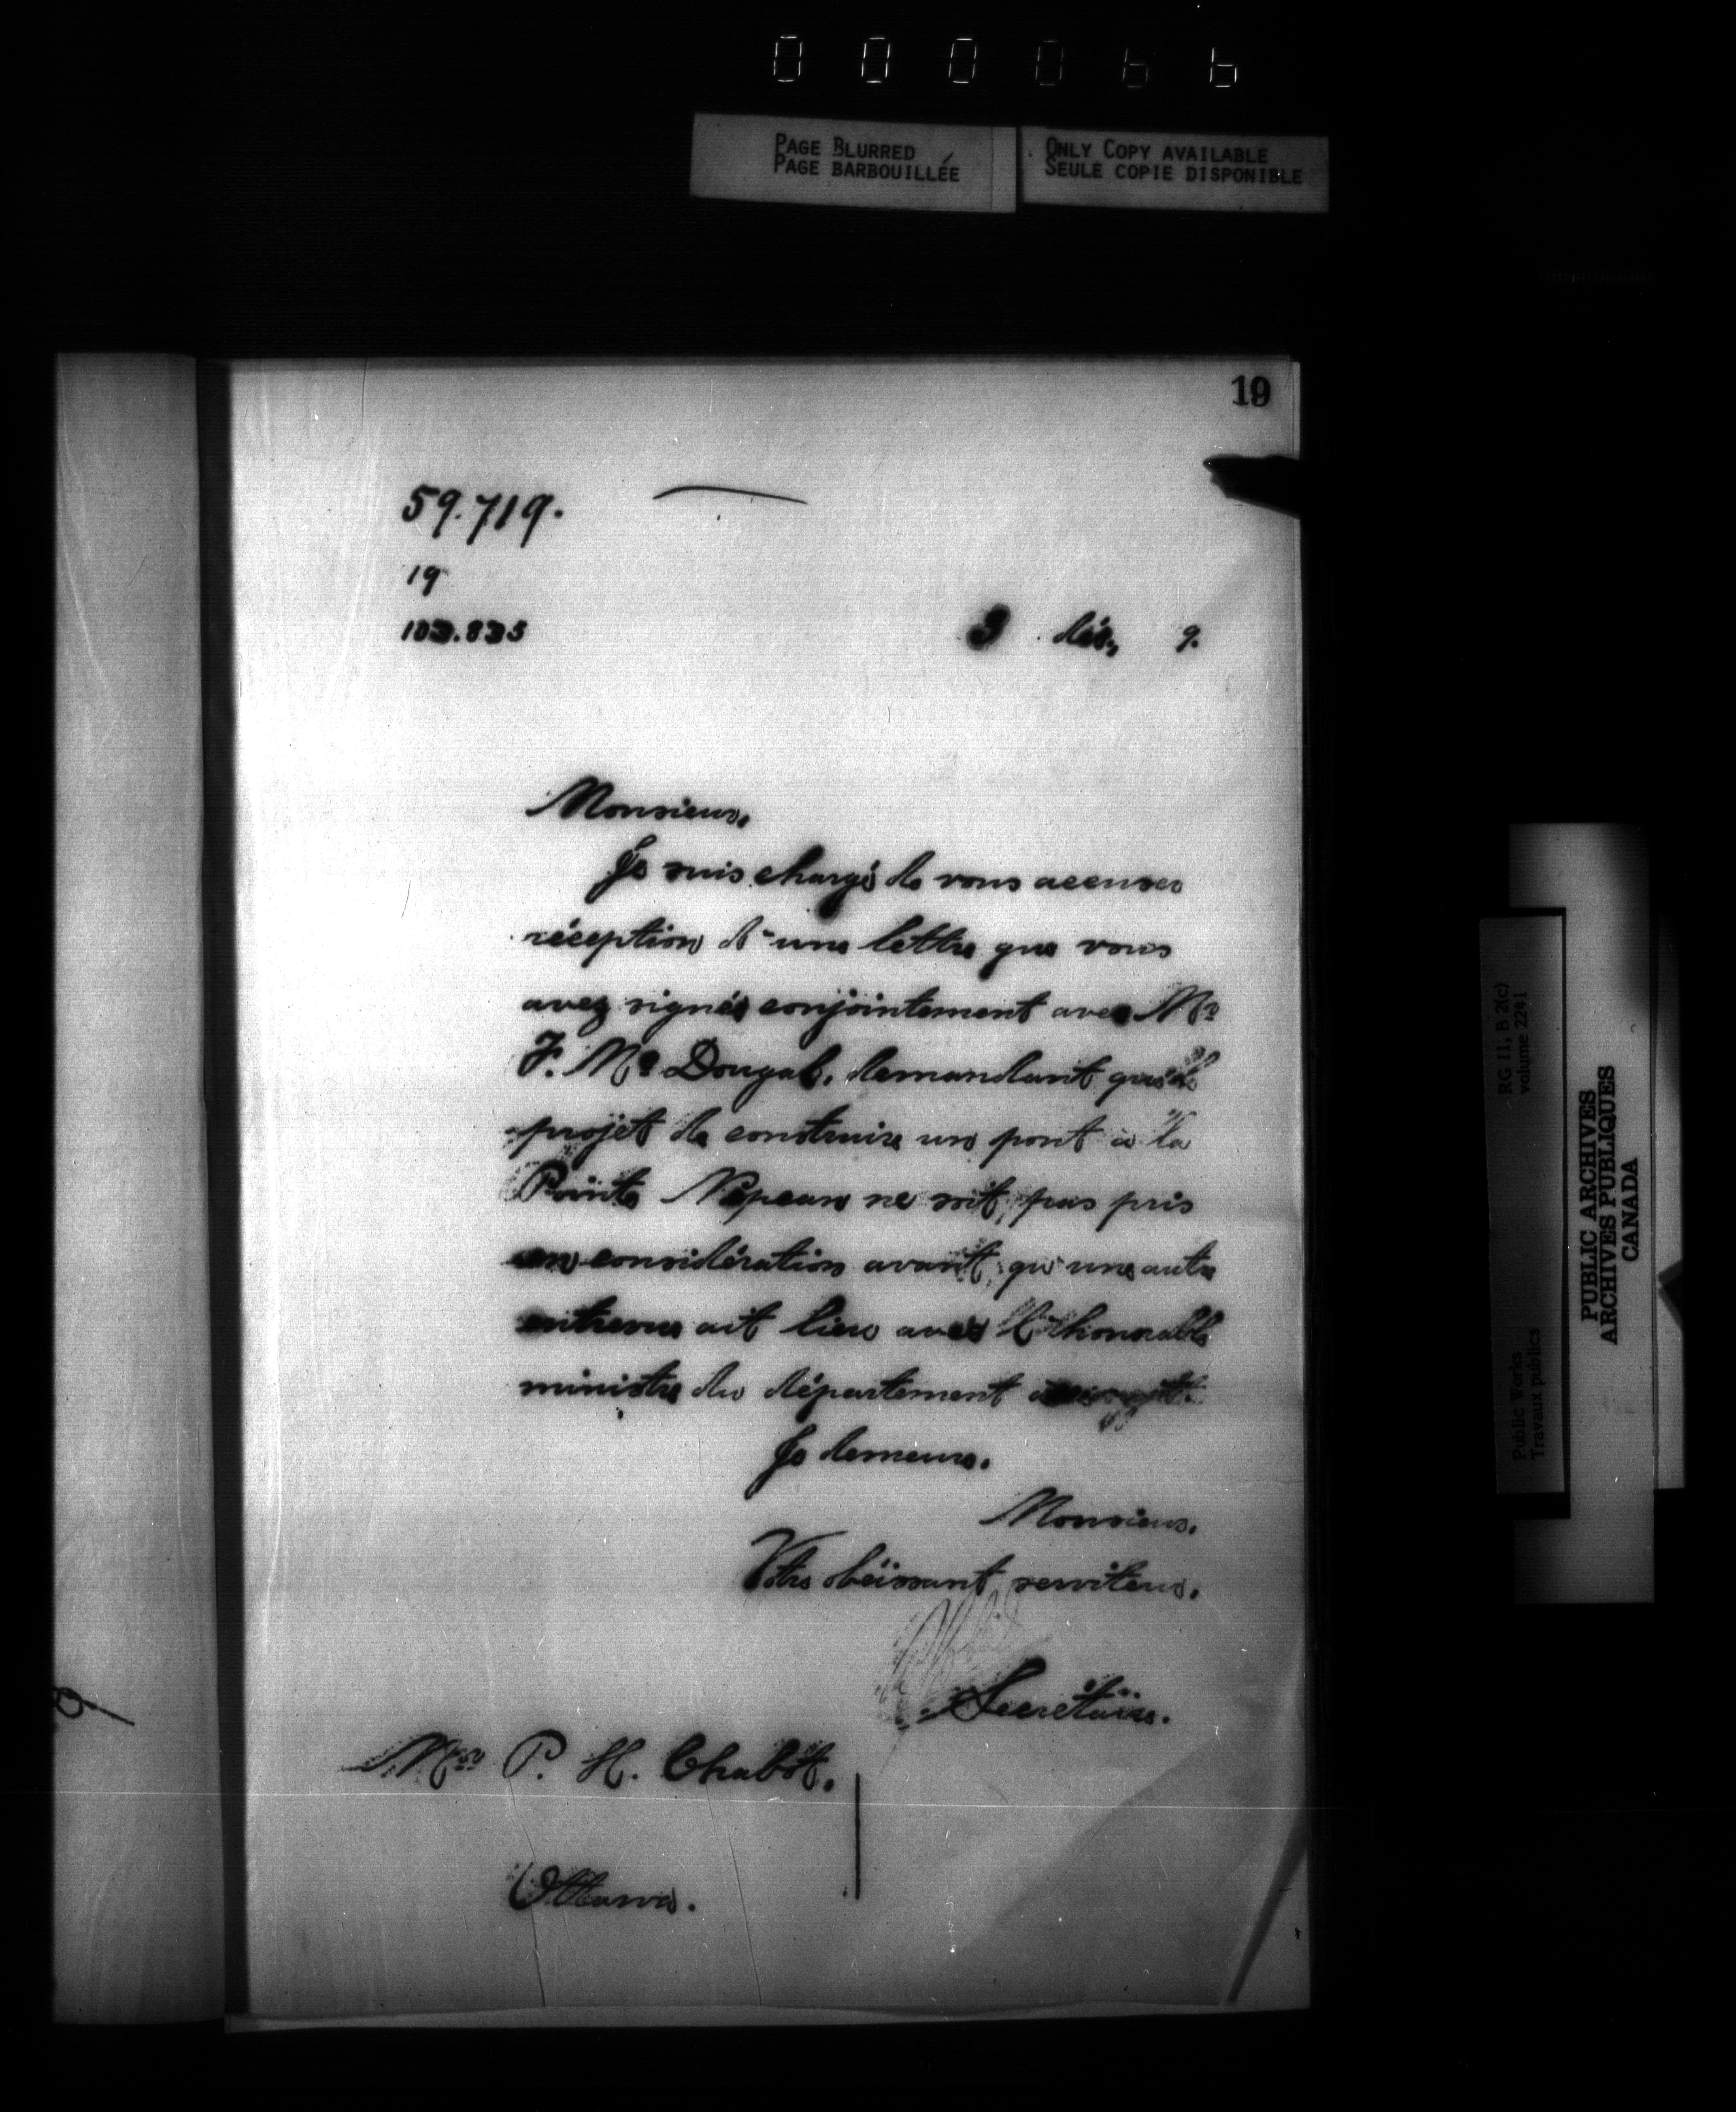 000066
PAGE BLURRED
PAGE BARBOUILLÉE
ONLY COPY AVAILABLE
SEULE COPIE DISPONIBLE
19
59.719.
19
103.835
3 déc., 9.
Monsieur,
Je suis chargé de vous accuser
réception d'une lettre que vous
avez signée conjointement avec Mr
F. Mc Dougal, demandant que le
projet de construire un pont à la
Pointe Nepean ne soit pas pris
en considération avant qu'une autre
entrevue ait lieu avec l'honorable
ministre du département
Je demeure,
Monsieur,
Votre obéissant serviteur,
Secrétaire.
Mr P. H. Chabot,
Ottawa.
RG 11, B 2(c)
volume 2241
Public Works
Travaux publics
PUBLIC ARCHIVES
ARCHIVES PUBLIQUES
CANADA